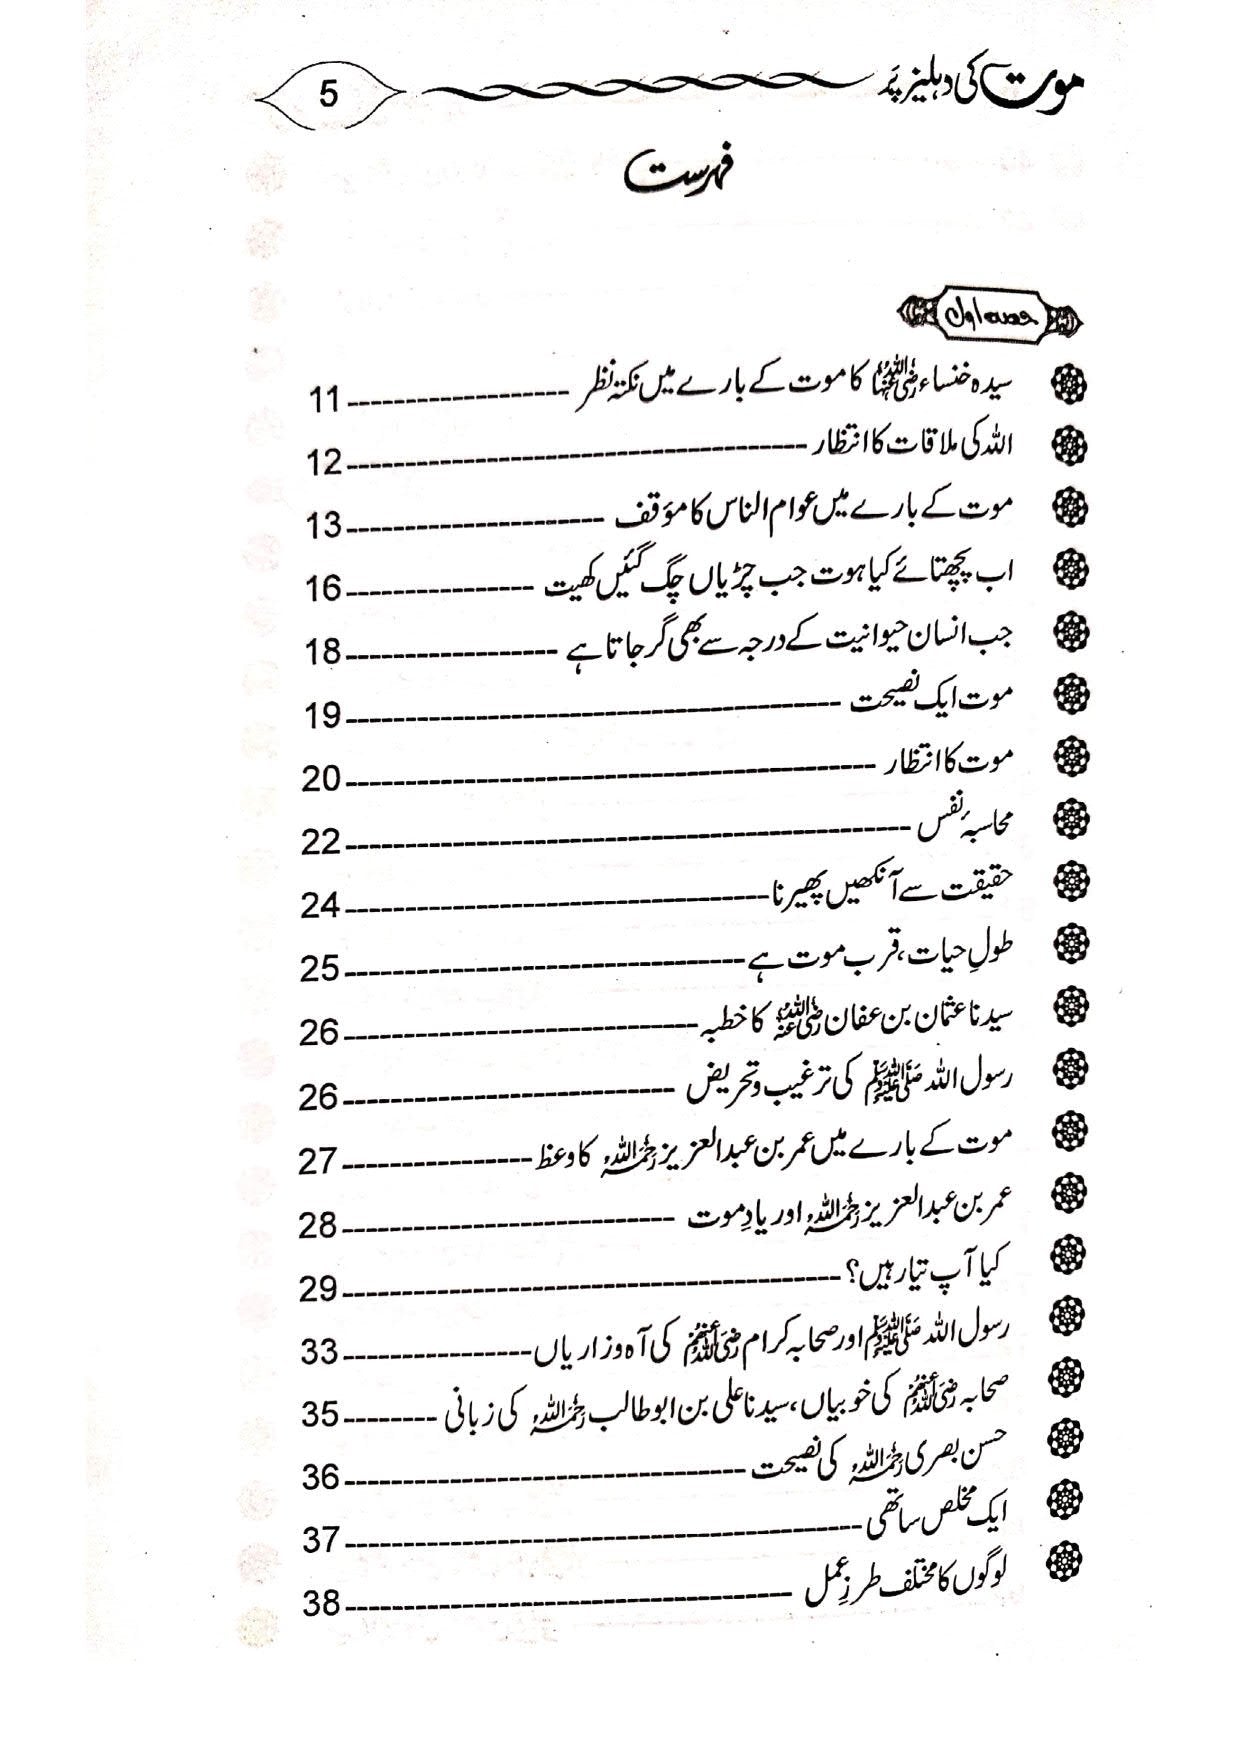 موت کی دہلیز پر 5
فہرست
حصہ اول
سیدہ خنساء رضی اللہ عنہا کا موت کے بارے میں نکتۂ نظر ------------------- 11
اللہ کی ملاقات کا انتظار --------------------------------------- 12
موت کے بارے میں عوام الناس کا مؤقف ---------------------- 13
اب پچھتائے کیا ہوت جب چڑیاں چگ گئیں کھیت ---------------- 16
جب انسان حیوانیت کے درجہ سے بھی گر جاتا ہے ------------------ 18
موت ایک نصیحت ------------------------------------------ 19
موت کا انتظار --------------------------------------------- 20
محاسبۂ نفس ------------------------------------------------ 22
حقیقت سے آنکھیں پھیرنا ------------------------------------ 24
طولِ حیات، قرب موت ہے ---------------------------------- 25
سیدنا عثمان بن عفان رضی اللہ عنہ کا خطبہ ------------------------------ 26
رسول اللہ صلی اللہ علیہ وسلم کی ترغیب و تحریض ---------------------------- 26
موت کے بارے میں عمر بن عبدالعزیز رحمہ اللہ کا وعظ ---------------- 27
عمر بن عبدالعزیز رحمہ اللہ اور یادِ موت ---------------------------- 28
کیا آپ تیار ہیں؟ ------------------------------------------ 29
رسول اللہ صلی اللہ علیہ وسلم اور صحابہ کرام رضی اللہ عنہم کی آہ و زاریاں ---------------- 33
صحابہ رضی اللہ عنہم کی خوبیاں، سیدنا علی بن ابو طالب رحمہ اللہ کی زبانی -------- 35
حسن بصری رحمہ اللہ کی نصیحت ---------------------------------- 36
ایک مخلص ساتھی -------------------------------------------- 37
لوگوں کا مختلف طرزِ عمل -------------------------------------- 38